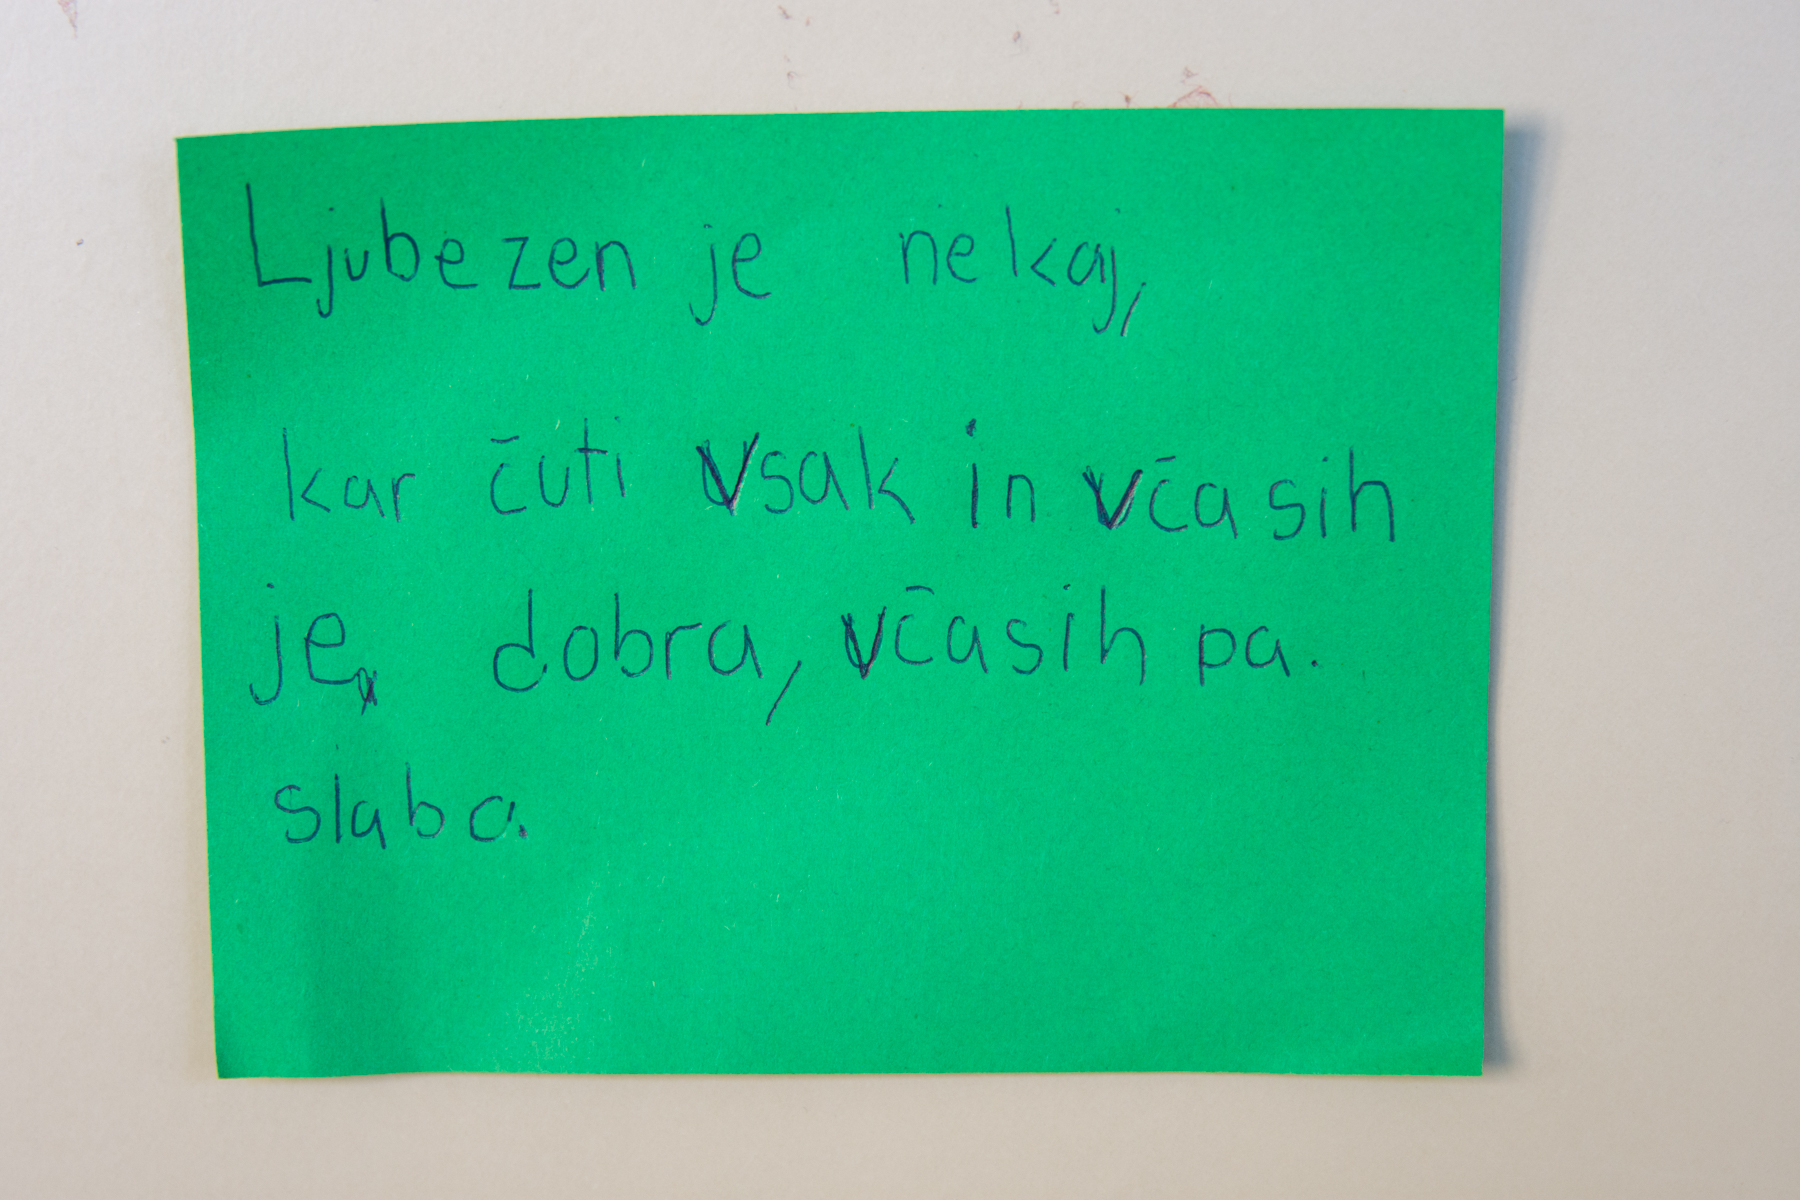 Ljubezen je nekaj,
kar čuti vsak in včasih
je dobra, včasih pa.
slaba.